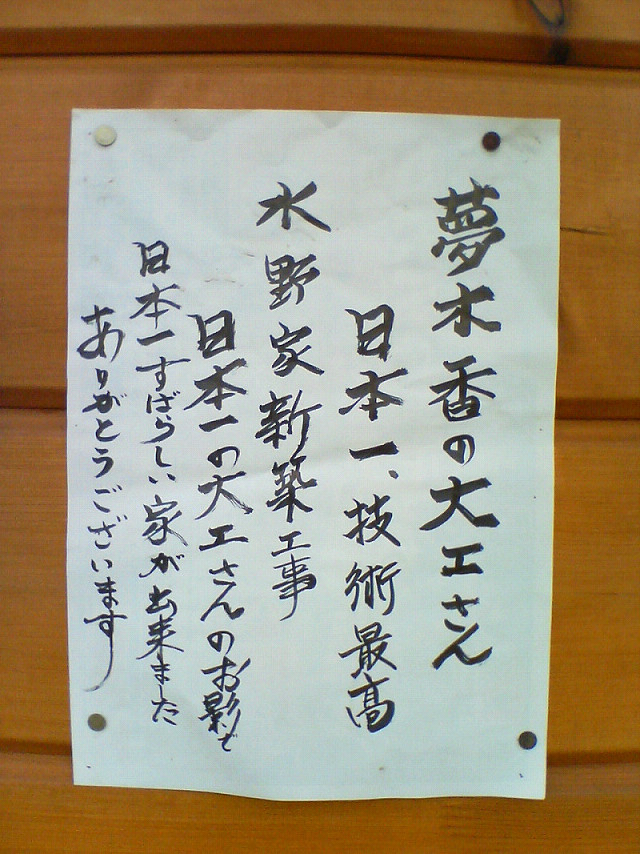 夢木香の大工さん
日本一、技術最高
水野家新築工事
日本一の大工さんのお影で
日本一すばらしい家が出来ました
ありがとうございます